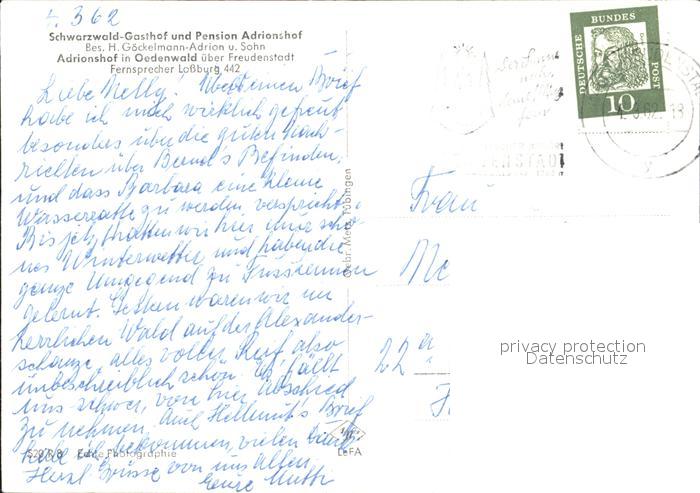 4.3.62
Schwarzwald-Gasthof und Pension Adrionshof
Bes. H. Göckelmann-Adrion u. Sohn
Adrionshof in Oedenwald über Freudenstadt
Fernsprecher Loßburg 442
Liebe Nelly! Über einen Brief
habe ich mich wirklich gefreut
besonders über die guten Nach-
richten über Bernd's Befinden,
und dass Barbara eine kleine
Wasserratte zu werden verspricht.
Bis jetzt hatten wir hier nur schö-
nes Winterwetter und haben die
ganze Umgegend zu Fuss kennen
gelernt. Gestern waren wir im
herrlichen Wald auf der Alexander-
schanze, alles voller Reif also
unbeschreiblich schön. Es fällt
uns schwer, von hier Abschied
zu nehmen. Auch Hellmut's Brief
habe ich bekommen, vielen Dank
Herzl. Grüsse von uns Allen
Eure Mutti
Echte Photographie
LEFA
Gebr. Metz, Tübingen
DEUTSCHE
BUNDES
POST
10
Frau
Me
22a
privacy protection
Datenschutz